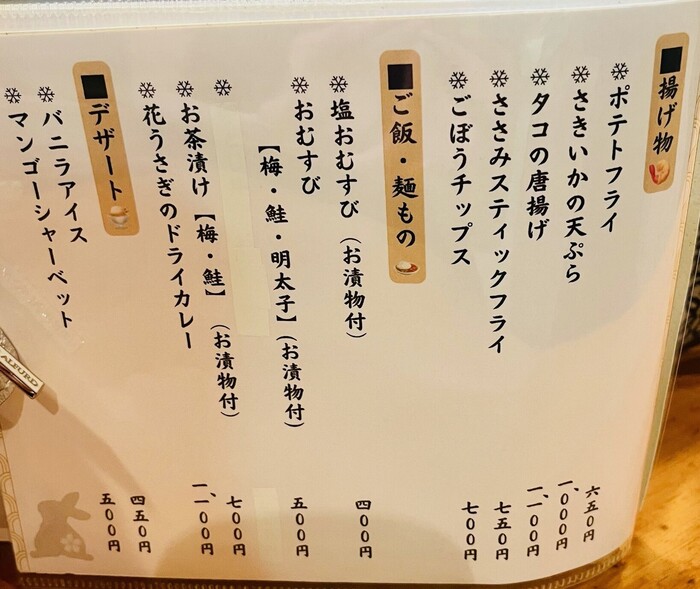 ■揚げ物
❄ポテトフライ 六五〇円
❄さきいかの天ぷら 一、〇〇〇円
❄タコの唐揚げ 一、一〇〇円
❄ささみスティックフライ 七五〇円
❄ごぼうチップス 七〇〇円
■ご飯・麺もの
❄塩おむすび（お漬物付） 四〇〇円
❄おむすび
【梅・鮭・明太子】（お漬物付） 五〇〇円
❄
❄お茶漬け【梅・鮭】（お漬物付） 七〇〇円
❄花うさぎのドライカレー 一、一〇〇円
■デザート
❄バニラアイス 四五〇円
❄マンゴーシャーベット 五〇〇円